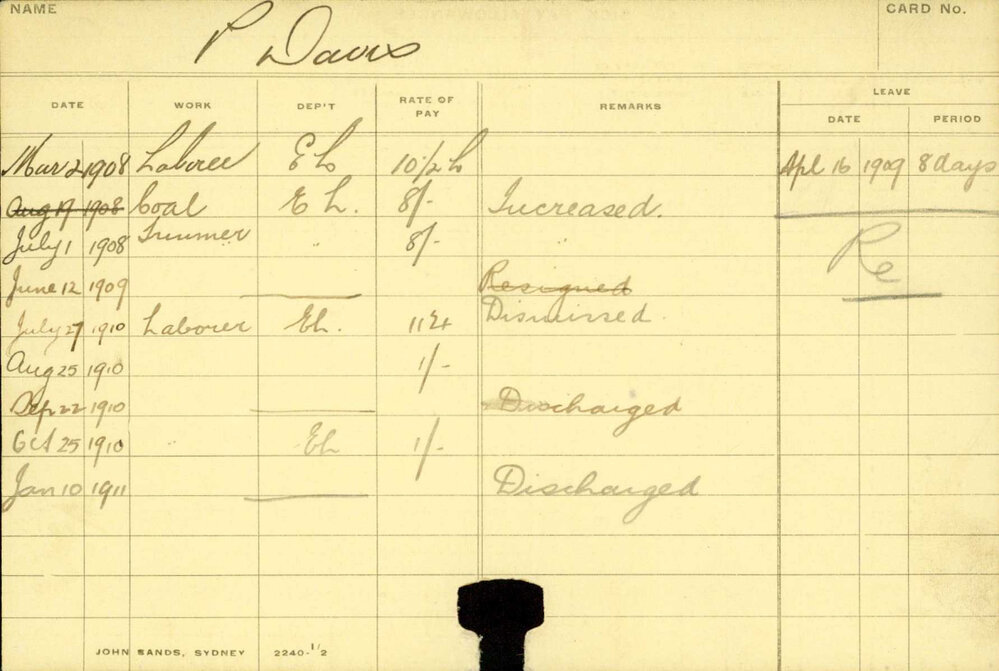 NAME
P Davis
CARD No.
DATE WORK DEP'T RATE OF PAY REMARKS LEAVE
DATE PERIOD
Mar 2 1908 Laborer EL 10 1/2 h Apl 16 1909 8 days
Aug 17 1908 Coal EL. 8/- Increased.
July 1 1908 Trimmer " 8/- " Re
June 12 1909 Resigned
Dismissed.
July 27 1910 Laborer EL.
Aug 25 1910 1/-
Sep 22 1910 Discharged
Oct 25 1910 " EL 1/-
Jan 10 1911 Discharged
JOHN SANDS, SYDNEY 2240-1/2